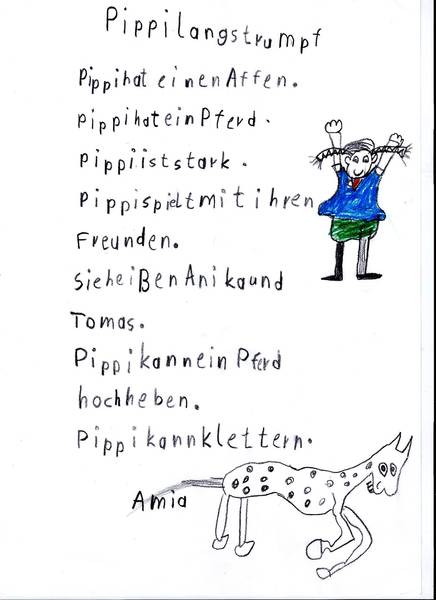 Pippilangstrumpf
Pippihat einenAffen.
pippihateinPferd.
pippiiststark.
pippispieltmitihren
Freunden.
sieheißenAnikaund
Tomas.
PippikannneinPferd
hochheben.
Pippikannklettern.
Amia